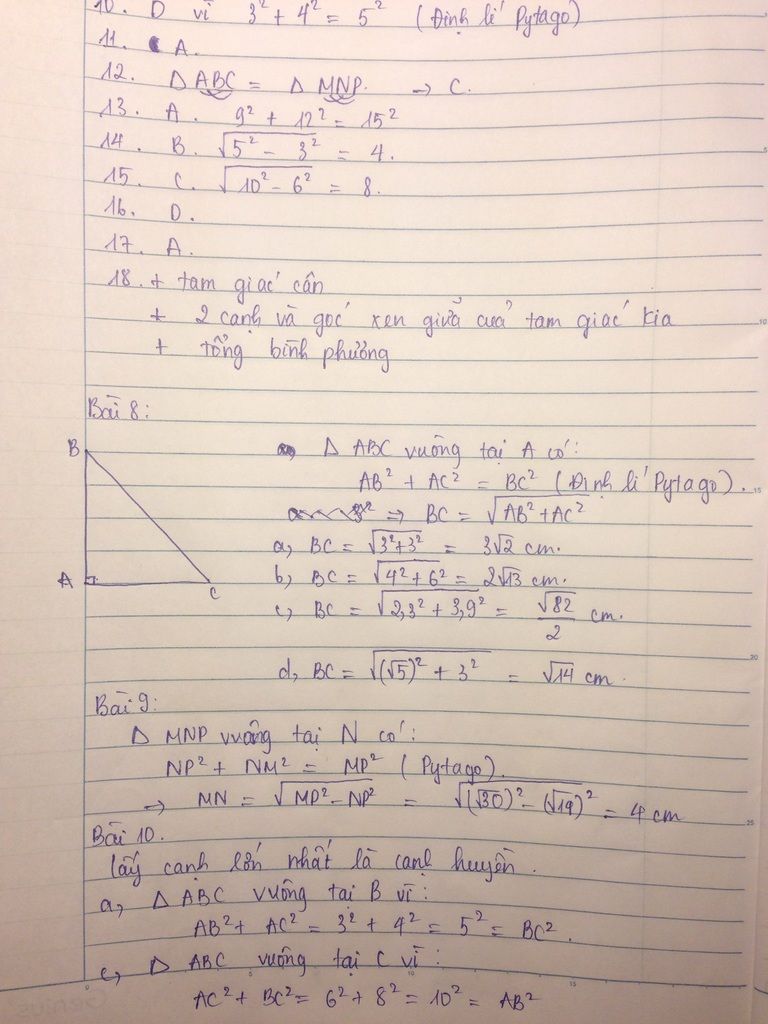 10. D vì 3² + 4² = 5² (Định lí Pytago)
11. A.
12. Δ ABC = Δ MNP. → C.
13. A. 9² + 12² = 15²
14. B. √(5² - 3²) = 4.
15. C. √(10² - 6²) = 8.
16. D.
17. A.
18. + tam giác cân
+ 2 cạnh và góc xen giữa của tam giác kia
+ tổng bình phương
Bài 8:
B
A
C
Δ ABC vuông tại A có:
AB² + AC² = BC² (Định lí Pytago).
=> BC = √(AB² + AC²)
a, BC = √(3²+3²) = 3√2 cm.
b, BC = √(4² + 6²) = 2√13 cm.
c, BC = √(2,3² + 3,9²) = √82/2 cm.
d, BC = √((√5)² + 3²) = √14 cm.
Bài 9:
Δ MNP vuông tại N có:
NP² + NM² = MP² (Pytago).
=> MN = √(MP² - NP²) = √((√30)² - (√19)²) = 4 cm
Bài 10.
lấy cạnh lớn nhất là cạnh huyền.
a, Δ ABC vuông tại B vì:
AB² + AC² = 3² + 4² = 5² = BC².
c, Δ ABC vuông tại C vì:
AC² + BC² = 6² + 8² = 10² = AB²